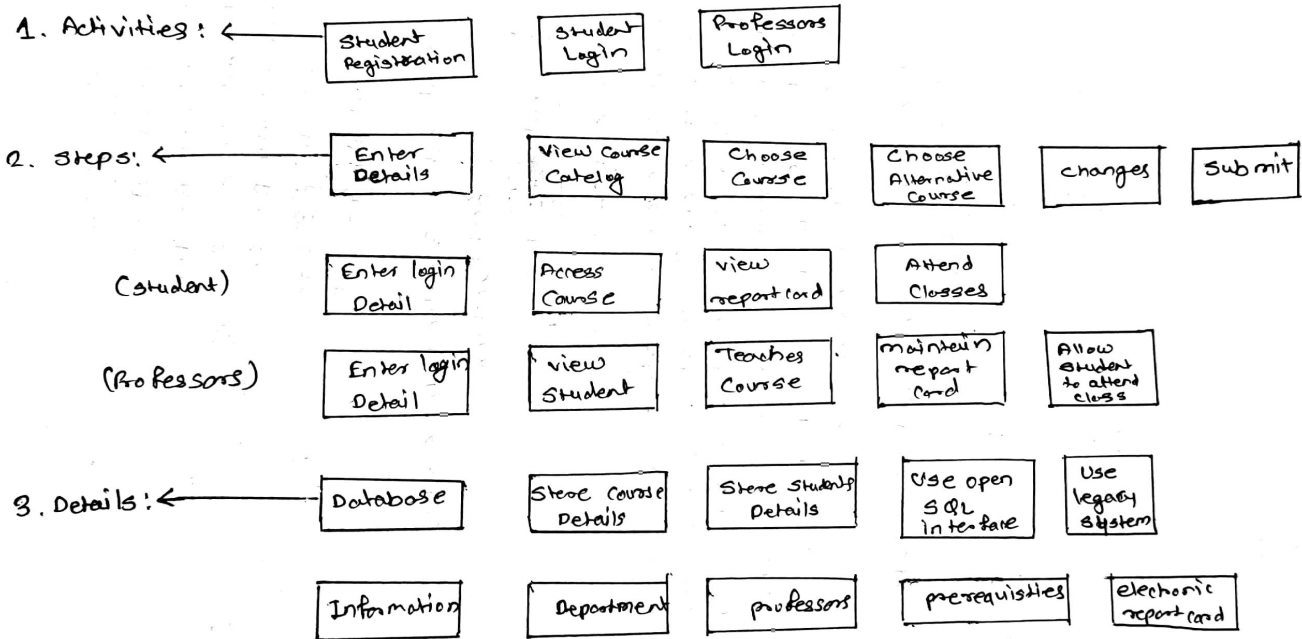 1. Activities:
Student
Registration
Student
Login
Professors
Login
2. Steps:
Enter
Details
View Course
Catelog
Choose
Course
Choose
Alternative
Course
changes
Submit
(Student)
Enter login
Detail
Access
Course
view
report card
Attend
Classes
(Professors)
Enter login
Detail
view
Student
Teaches
Course
maintain
report
Card
Allow
Student
to attend
class
3. Details:
Database
Store Course
Details
Store Students
Details
Use open
SQL
interface
Use
legacy
system
Information
Department
professors
prerequisties
electronic
report card